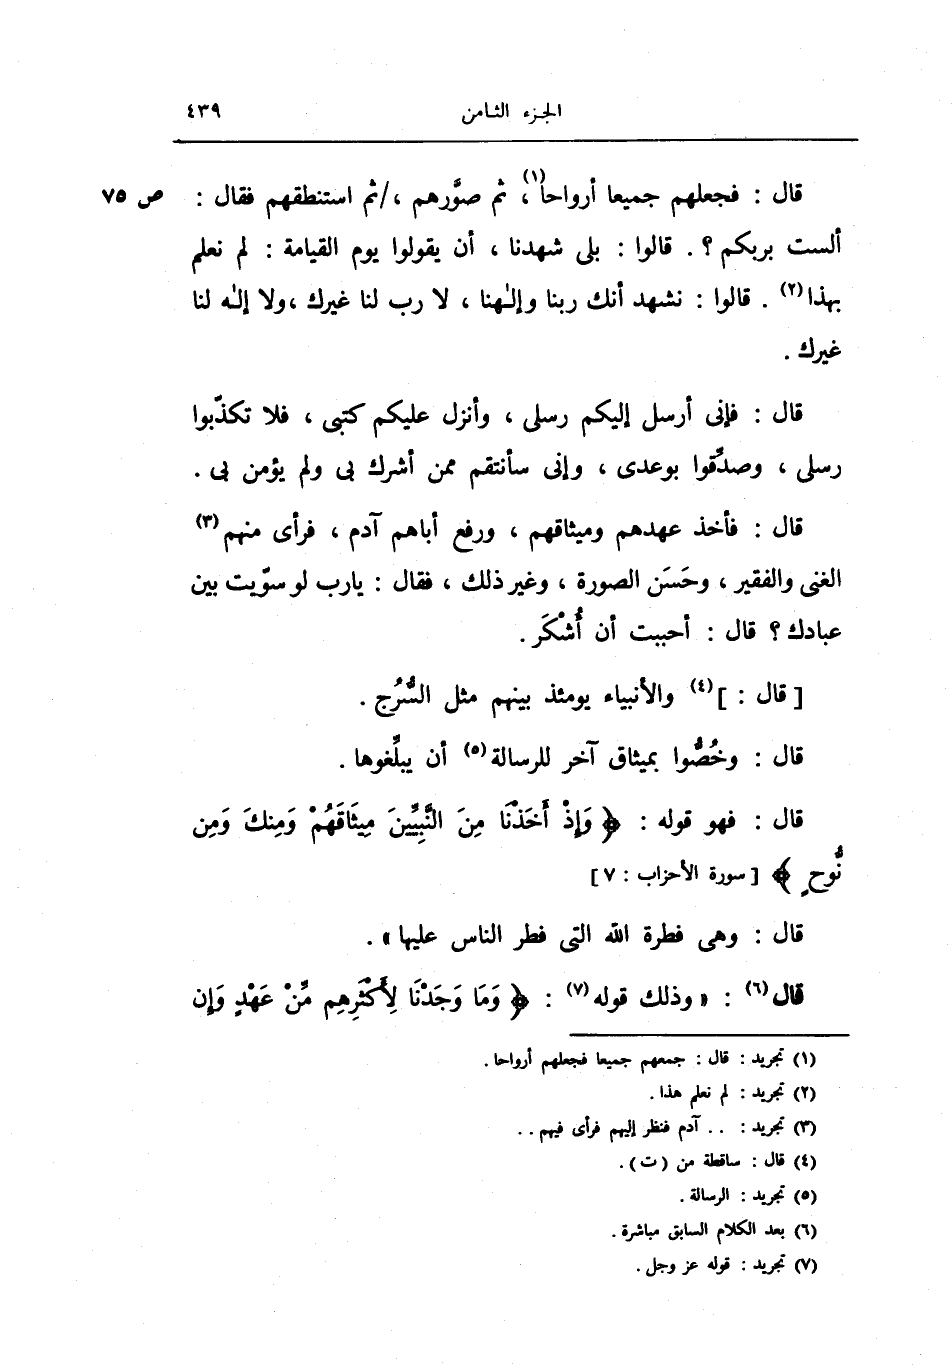 الجزء الثامن ٤٣٩
قال : فجعلهم جميعا أرواحا(١) ، ثم صوَّرهم ،/ثم استنطقهم فقال : ص ٧٥
ألست بربكم ؟ . قالوا : بلى شهدنا ، أن يقولوا يوم القيامة : لم نعلم
بهذا(٢) . قالوا : نشهد أنك ربنا وإلٰهنا ، لا رب لنا غيرك ،ولا إلٰه لنا
غيرك .
قال : فإنى أرسل إليكم رسلى ، وأنزل عليكم كتبى ، فلا تكذّبوا
رسلى ، وصدِّقوا بوعدى ، وإنى سأنتقم ممن أشرك بى ولم يؤمن بى .
قال : فأخذ عهدهم وميثاقهم ، ورفع أباهم آدم ، فرأى منهم(٣)
الغنى والفقير ، وحَسَن الصورة ، وغير ذلك ، فقال : يارب لو سوّيت بين
عبادك ؟ قال : أحببت أن أُشْكَر .
[ قال : ](٤) والأنبياء يومئذ بينهم مثل السُّرُج .
قال : وخُصُّوا بميثاق آخر للرسالة(٥) أن يبلِّغوها .
قال : فهو قوله : ﴿ وَإِذْ أَخَذْنَا مِنَ النَّبِيِّينَ مِيثَاقَهُمْ وَمِنكَ وَمِن
نُّوحٍ ﴾ [ سورة الأحزاب : ٧ ]
قال : وهى فطرة الله التى فطر الناس عليها » .
قال(٦) : « وذلك قوله(٧) : ﴿ وَمَا وَجَدْنَا لِأَكْثَرِهِم مِّنْ عَهْدٍ وَإِن
(١) تجريد : قال : جمعهم جميعا فجعلهم أرواحا .
(٢) تجريد : لم نعلم هذا .
(٣) تجريد : . . آدم فنظر إليهم فرأى فيهم . .
(٤) قال : ساقطة من ( ت ) .
(٥) تجريد : الرسالة .
(٦) بعد الكلام السابق مباشرة .
(٧) تجريد : قوله عز وجل .